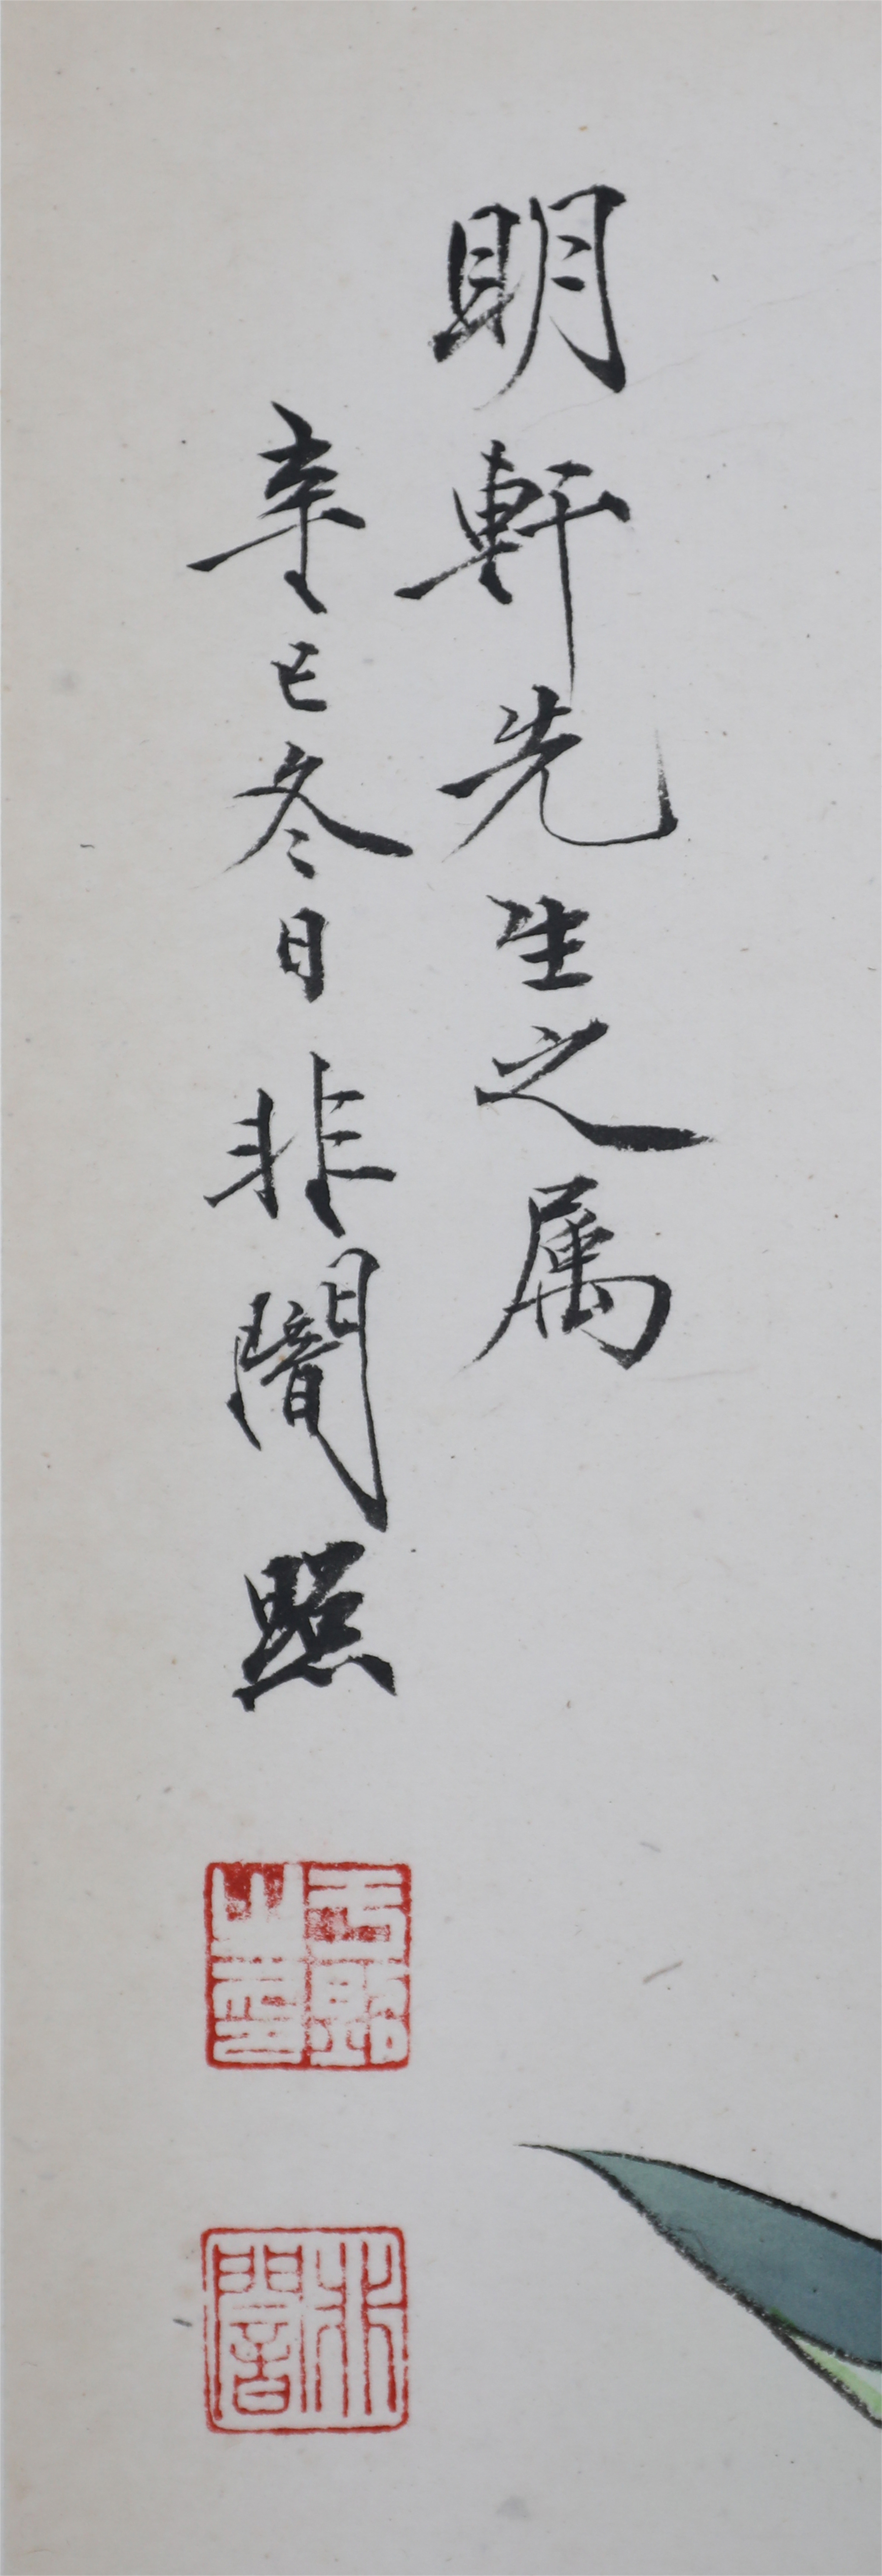 明軒先生之属
辛巳冬日非闇照
于照之印
非闇